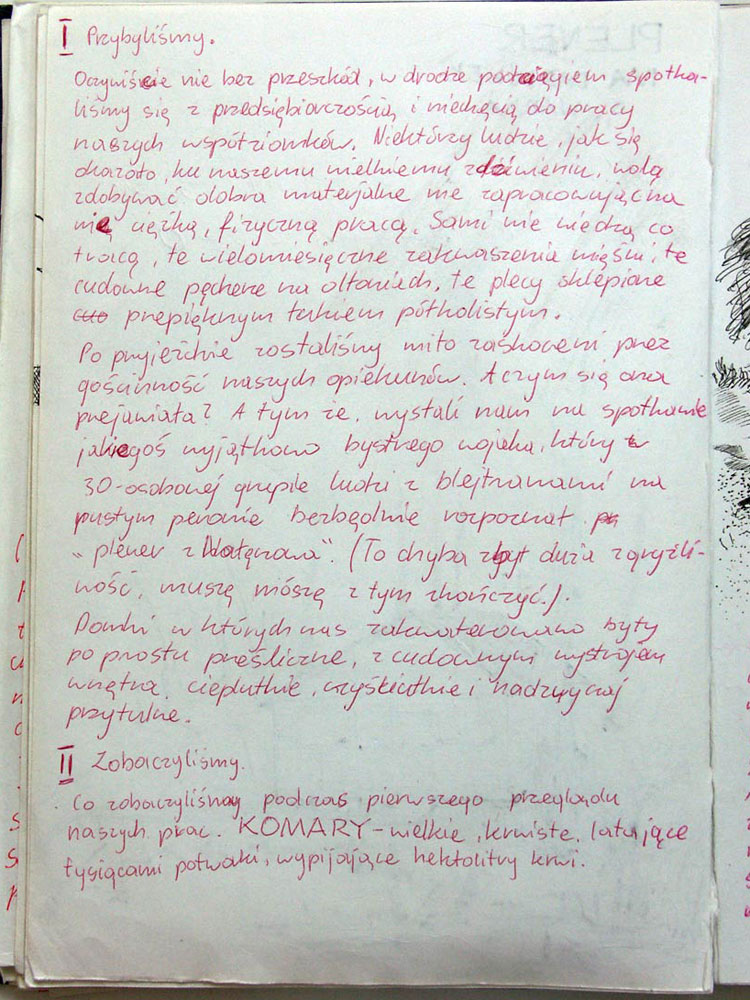 I Przybyliśmy.
Oczywiście nie bez przeszkód, w drodze podciągiem spotka-
liśmy się z przedsiębiorczością i niechęcią do pracy
naszych współziomków. Niektórzy ludzie, jak się
okazało, ku naszemu wielkiemu zdziwieniu, wolą
zdobywać dobra materjalne nie zapracowując na
nie ciężką, fizyczną pracą. Sami nie wiedzą co
tracą, te wielomiesięczne zakwaszenia mięśni, te
cudowne pęcherze na dłoniach, te plecy sklepione
przepięknym łukiem półkolistym.
Po przyjeździe zostaliśmy miło zaskoczeni przez
gościnność naszych opiekunów. A czym się ona
przejawiała? A tym że, wysłali nam na spotkanie
jakiegoś wyjątkowo bystrego wojaka, który w
30-osobowej grupie ludzi z blejtramami na
pustym peronie bezbłędnie rozpoznał
"plener z Wołgowa". (To chyba zbyt duża zgryźli-
wość, muszę z tym skończyć.).
Domki w których nas zakwaterowano były
po prostu prześliczne, z cudownym wystrojem
wnętrza, cieplutkie, czyściutkie i nadzwyczaj
przytulne.
II Zobaczyliśmy.
Co zobaczyliśmy podczas pierwszego przeglądu
naszych prac. KOMARY - wielkie, krwiste, latające
tysiącami potwaki, wypijające hektolitry krwi.
PLENER